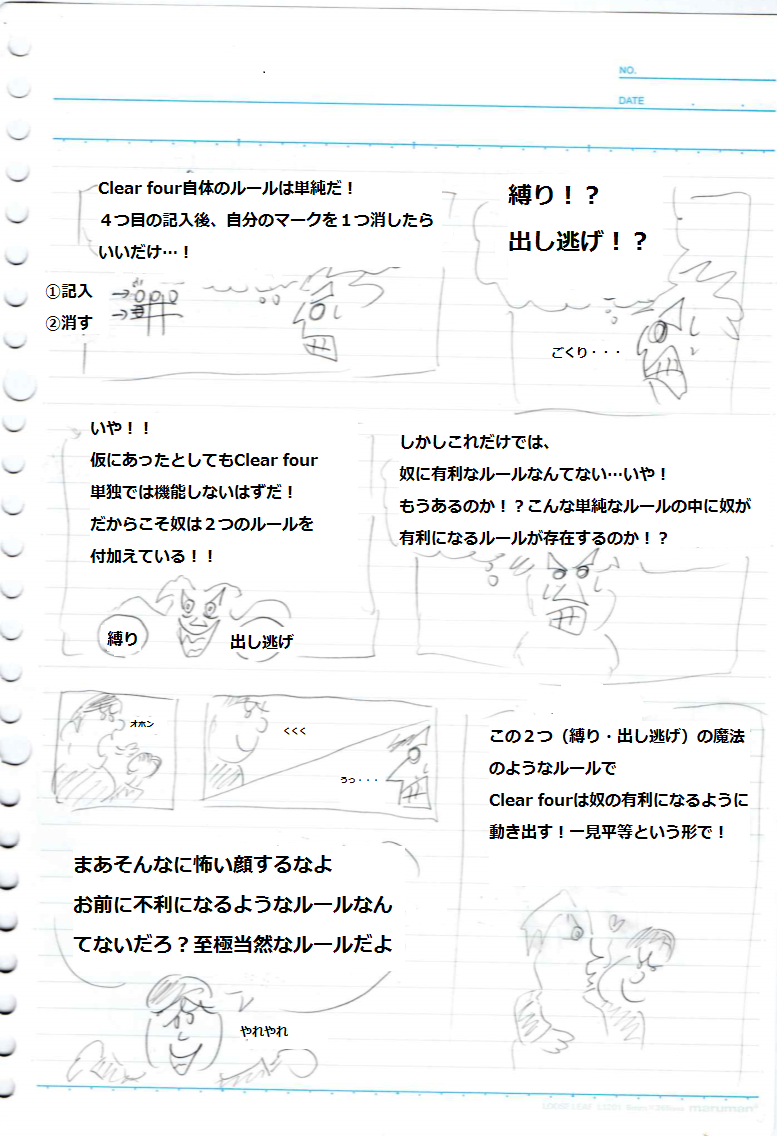 NO.
DATE
Clear four自体のルールは単純だ！
４つ目の記入後、自分のマークを１つ消したら
いいだけ…！
①記入
②消す
縛り！？
出し逃げ！？
ごくり・・・
いや！！
仮にあったとしてもClear four
単独では機能しないはずだ！
だからこそ奴は２つのルールを
付加えている！！
縛り
出し逃げ
しかしこれだけでは、
奴に有利なルールなんてない…いや！
もうあるのか！？こんな単純なルールの中に奴が
有利になるルールが存在するのか！？
オホン
くくく
うっ・・・
この２つ（縛り・出し逃げ）の魔法
のようなルールで
Clear fourは奴の有利になるように
動き出す！一見平等という形で！
まあそんなに怖い顔するなよ
お前に不利になるようなルールなん
てないだろ？至極当然なルールだよ
やれやれ
LOOSE LEAF
maruman